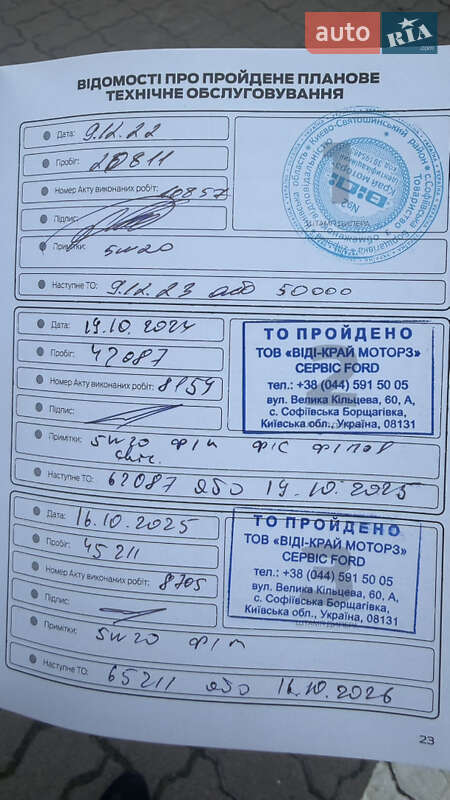 auto RIA.com
ВІДОМОСТІ ПРО ПРОЙДЕНЕ ПЛАНОВЕ
ТЕХНІЧНЕ ОБСЛУГОВУВАННЯ
Дата: 9.12.22
Пробіг: 20811
Номер Акту виконаних робіт: 10857
Підпис:
Примітки: 5w20
Наступне ТО: 9.12.23 або 50000
Дата: 19.10.2024
Пробіг: 42087
Номер Акту виконаних робіт: 8159
Підпис:
Примітки: 5w20
Наступне ТО: 62087 або 19.10.2025
ТО ПРОЙДЕНО
ТОВ «ВІДІ-КРАЙ МОТОРЗ»
СЕРВІС FORD
тел.: +38 (044) 591 50 05
вул. Велика Кільцева, 60, А,
с. Софіївська Борщагівка,
Київська обл., Україна, 08131
Дата: 16.10.2025
Пробіг: 45211
Номер Акту виконаних робіт: 8705
Підпис:
Примітки: 5w20
Наступне ТО: 65211 або 16.10.2026
ТО ПРОЙДЕНО
ТОВ «ВІДІ-КРАЙ МОТОРЗ»
СЕРВІС FORD
тел.: +38 (044) 591 50 05
вул. Велика Кільцева, 60, А,
с. Софіївська Борщагівка,
Київська обл., Україна, 08131
23